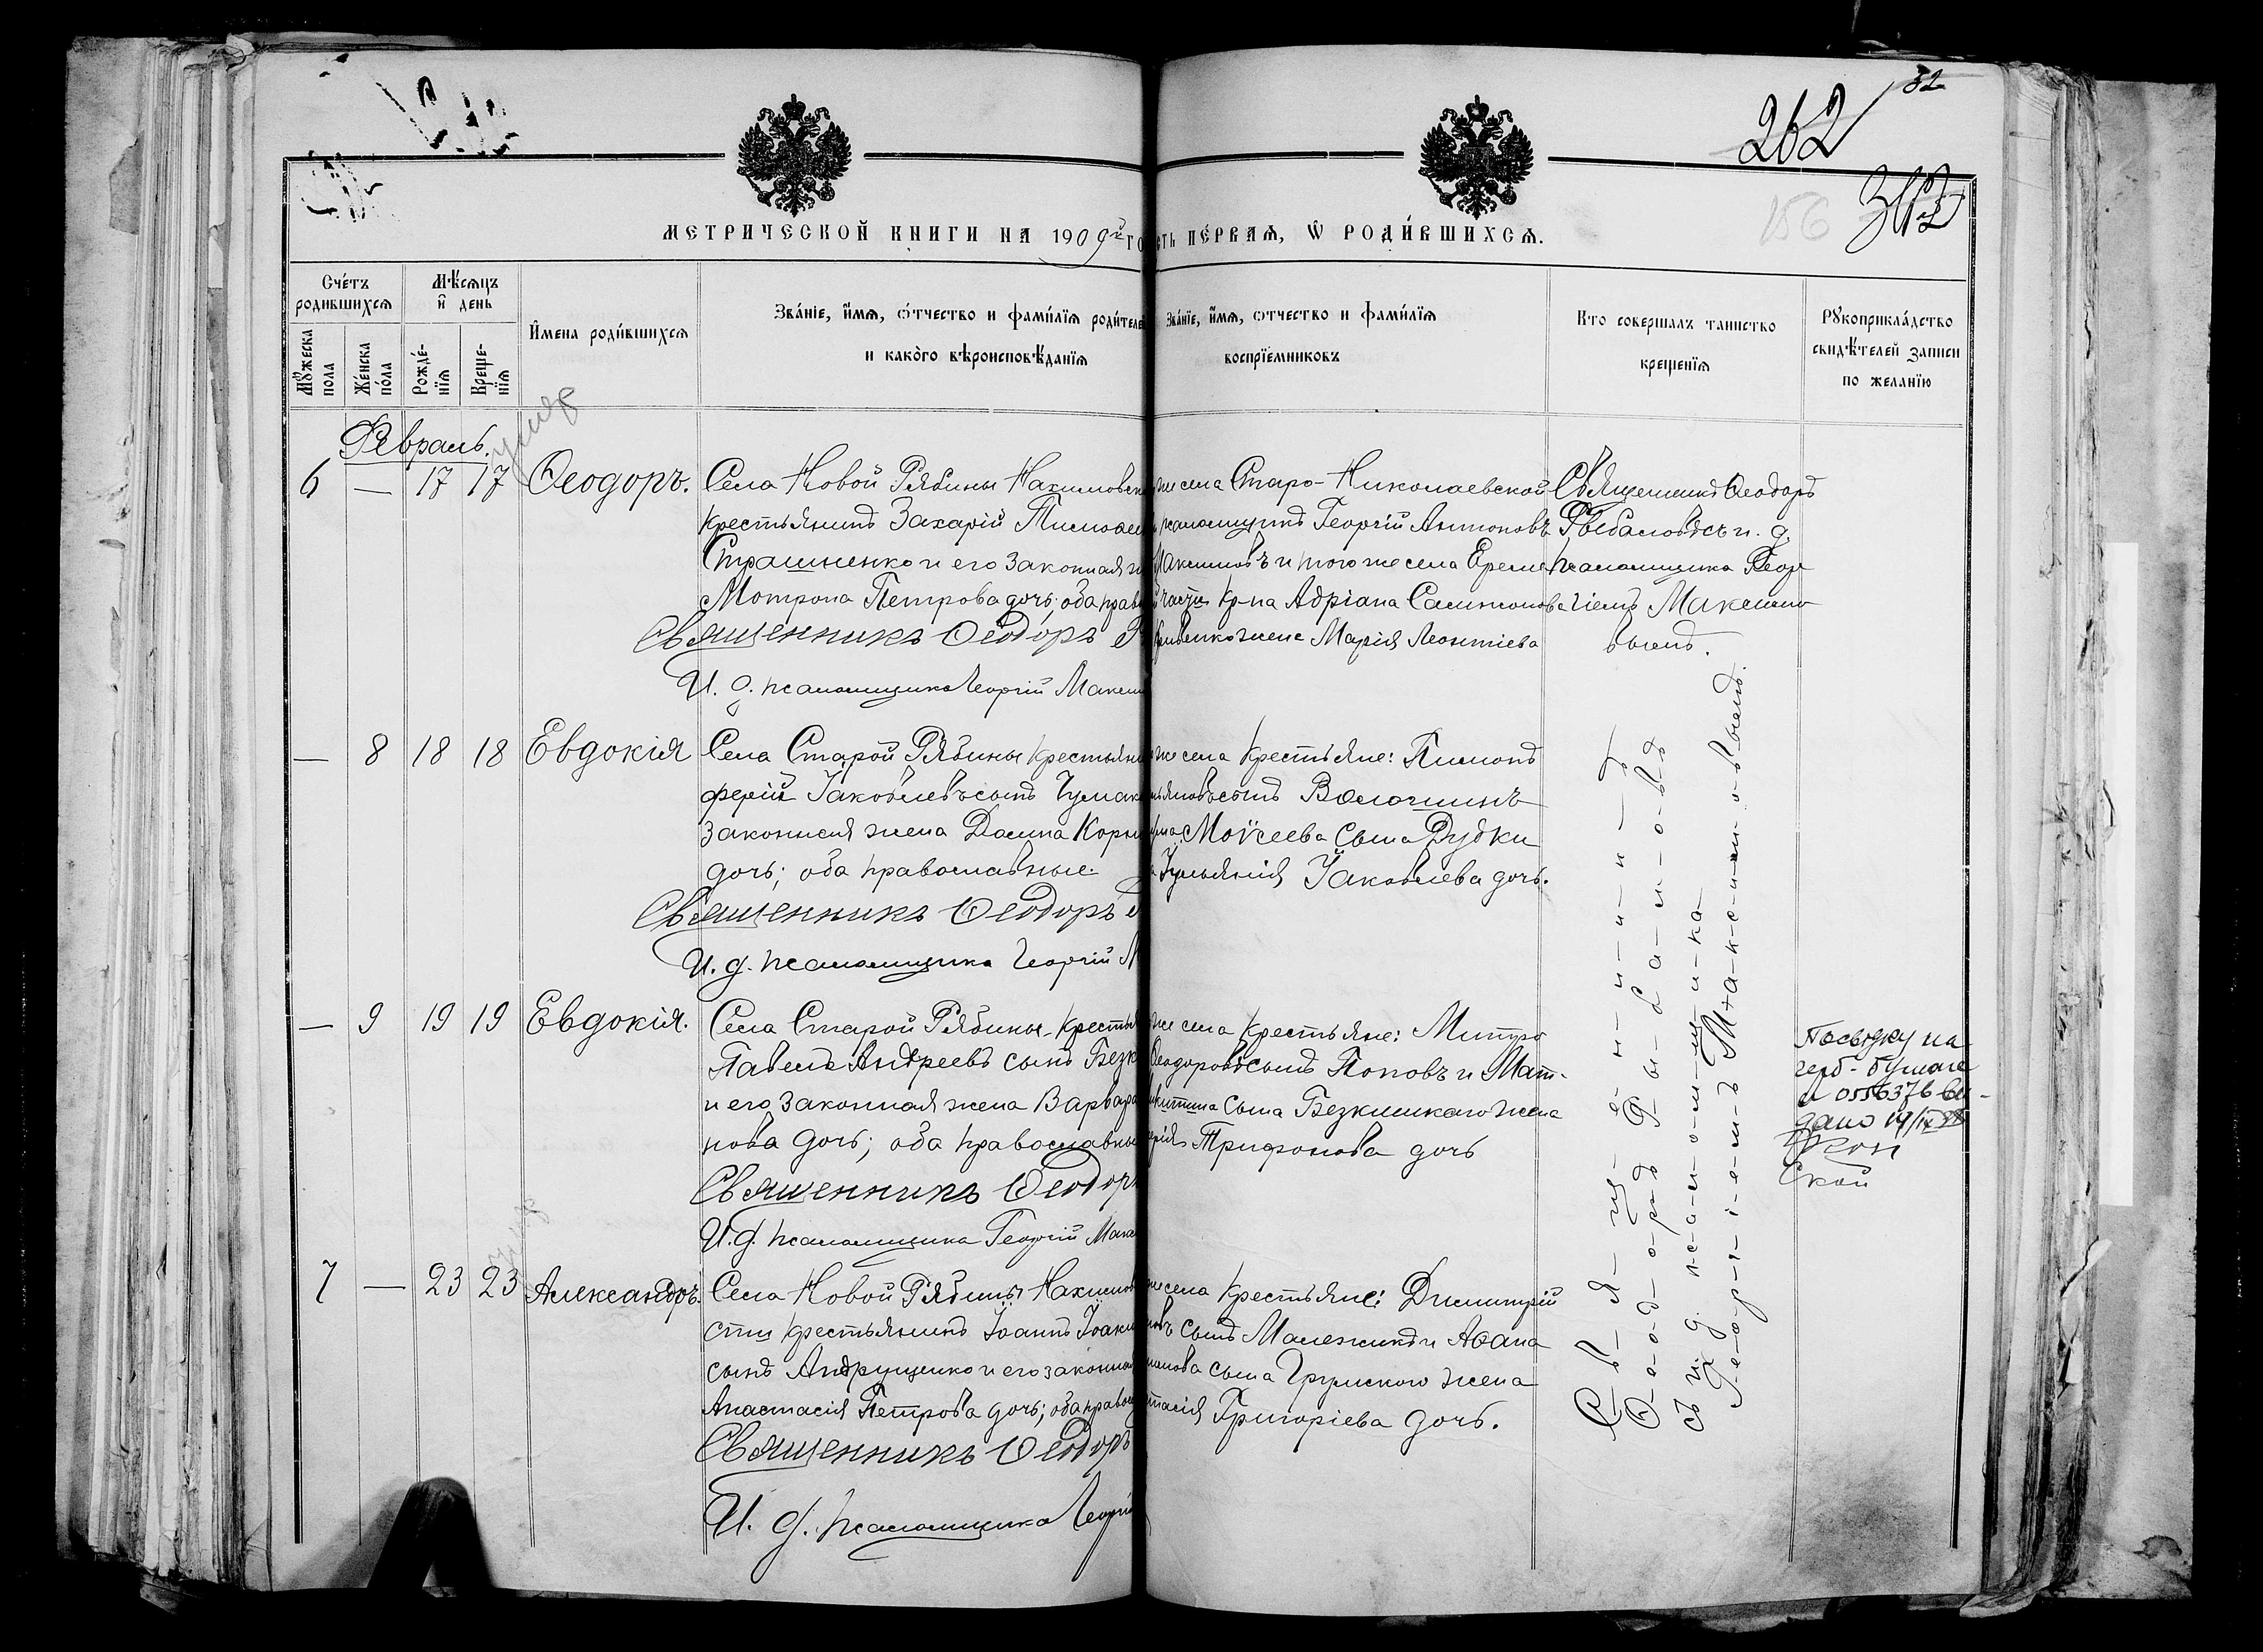 32
262
312
156
МЕТРИЧЕСКОЙ КНИГИ НА 1909й ГО
СТЬ ПЕ́РВАѦ, Ѡ РОДИ́ВШИХСѦ.
Сче́тъ родившихсѧ
Мѣ́сѧцъ и҆ день
И҆мена роди́вшихсѧ
Зва́нїе, и҆́мѧ, ѻ҆́тчество и фами́лїѧ роди́теле
и како́го вѣроисповѣ́данїѧ
Зва́нїе, и҆́мѧ, ѻ҆тчество и фами́лїѧ
воспрїе́мниковъ
Кто соверша́лъ таинство
креще́нїѧ
Рꙋкоприкла́дство
свидѣ́телей записи
по жела́нїю
Мꙋ́жеска пола
Же́нска по́ла
Рожде́нїѧ
Креще́нїѧ
умер
Февраль.
6 — 17 17 Ѳеодоръ.
Села Новой Рябины Нахимовск
крестьянинъ Захарій Тимоѳе
Страшненко и его законная ж
Мотрона Петрова дочь; оба прав
Священникъ Ѳеодоръ
И. д. псаломщика Георгій Макси
же села Старо-Николаевской
псаломщикъ Георгій Антоновъ
Максимовъ и того же села Ереме
части кр-на Адріана Самсонова
жена Марія Леонтіева
Священникъ Ѳеодоръ
и. д.
псаломщика Геор
гіемъ Максимо
вымъ.
— 8 18 18 Евдокія
Села Старой Рябины крестьяни
ферій Іаковлевъ сынъ Чумак
законная жена Домна Корн
дочь; оба православные.
Священникъ Ѳеодоръ
И. д. псаломщика Георгій М
же села крестьяне: Пимонъ
сынъ Волошинъ
Моисеева сына Рудки
Іульянія Іаковлева дочь.
— 9 19 19 Евдокія.
Села Старой Рябины крестья
Павелъ Андреевъ сынъ Безк
и его законная жена Варвара
нова дочь; оба православны
Священникъ Ѳеодоръ
И. д. псаломщика Георгій Макс
же села крестьяне: Митро
Ѳеодоровъ сынъ Поповъ и Мат-
китина сына жена
рія Трифонова дочь
на
герб. бумаге
0556376 вы-
дано
7 — 23 23 Александръ.
Села Новой Рябины Нахимов
сти крестьянинъ Іоаннъ Іоаки
сынъ Андрущенко и его законная
Анастасія Петрова дочь; оба правос
Священникъ Ѳеодоръ
И. д. псаломщика Георгі
же села крестьяне: Димитрій
овъ сынъ Маleжикъ и Аѳана
сына жена
тасія Григоріева дочь.
С-в-я-щ-е-н-н-и-к-ъ
Ѳ-е-о-д-о-р-ъ
съ и. д. п-с-а-л-о-м-щ-и-к-а
Г-е-о-р-г-і-е-м-ъ М-а-к-с-и-м-о-вымъ.